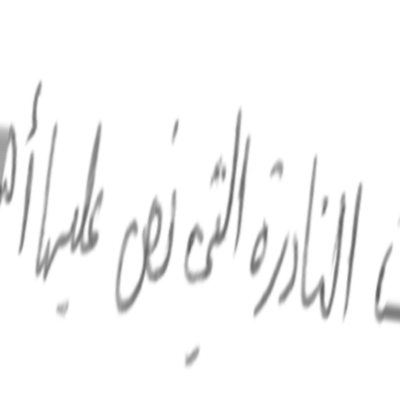 النادرة التي نص عليها